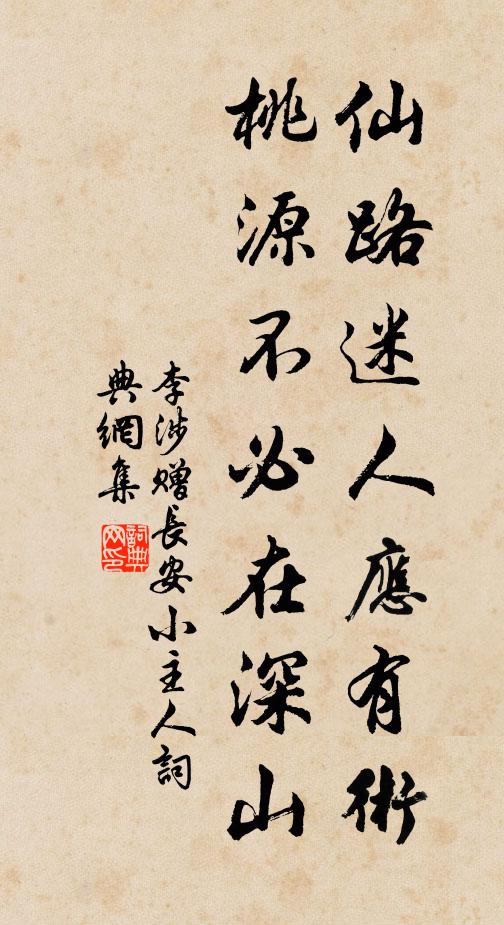 仙路迷人應有術
桃源不必在深山
李涉贈長安小主人詞
典網集
詞典网印